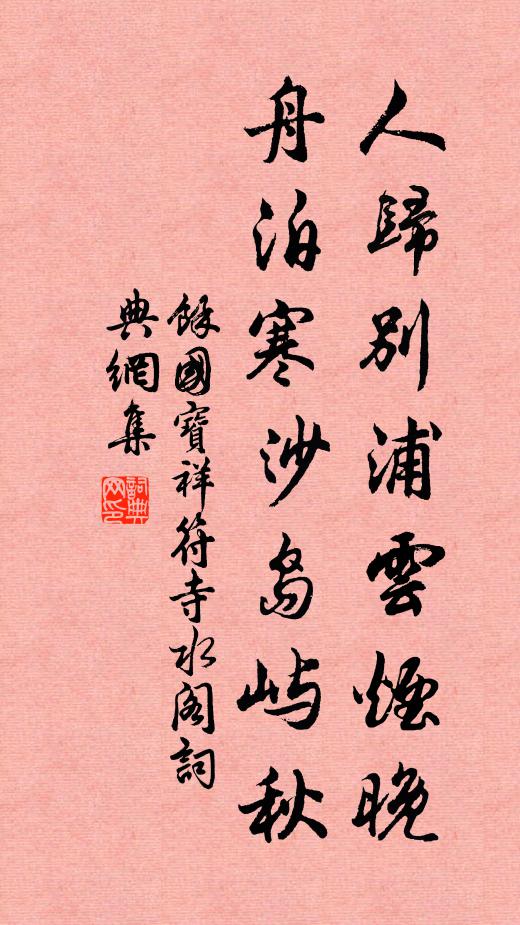 人歸別浦雲煙晚
舟泊寒沙島嶼秋
餘國寶祥符寺水閣詞
典網集
詞典網印